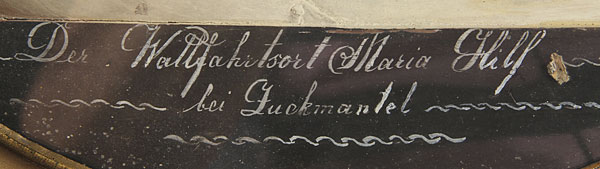 Der Wallfahrtsort Maria Hilf
bei Zuckmantel